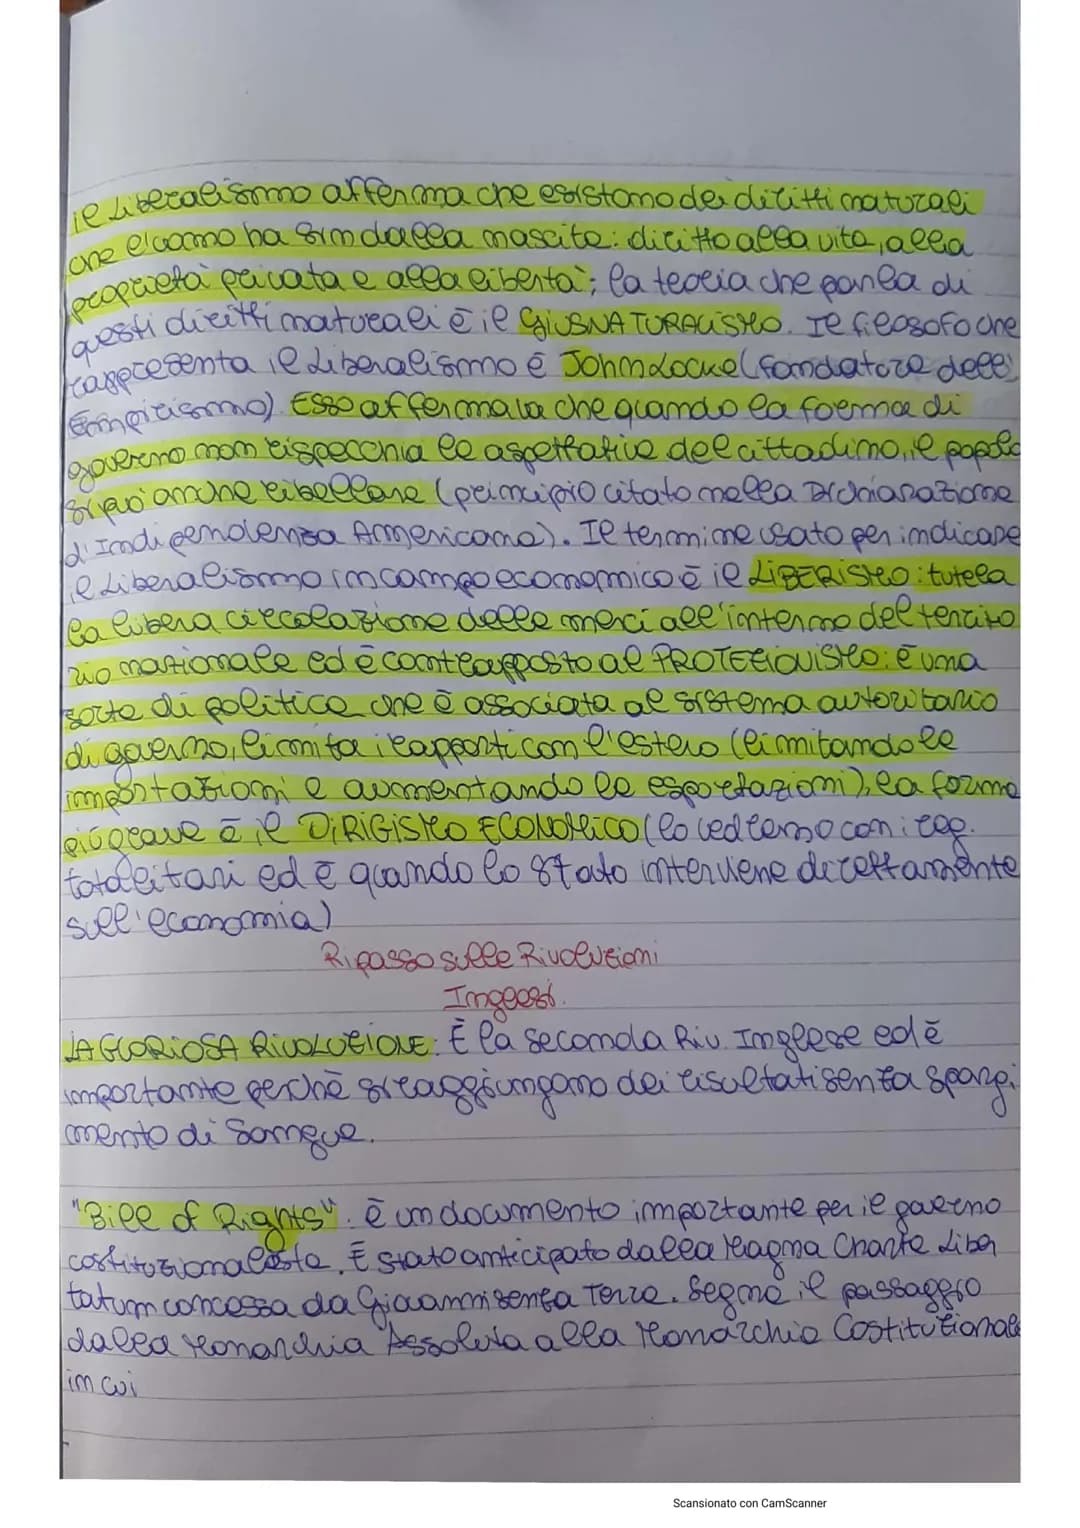 il Liberalismo afferma che esistono dei diritti naturali
che l'uomo ha sin dalla nascita: diritto alla vita, alla
proprietà privata e alla libertà; la teoria che parla di
questi diritti naturali è il GIUSNATURALISMO. Il filosofo che
rappresenta il Liberalismo è John Locke (fondatore dell'
Empirismo). Esso affermava che quando la forma di
governo non rispecchia le aspettative del cittadino, il popolo
si può anche ribellare (principio citato nella Dichiarazione
d'Indipendenza Americana). Il termine usato per indicare
il Liberalismo in campo economico è il LIBERISMO: tutela
la libera circolazione delle merci all'interno del territo
rio nazionale ed è contrapposto al PROTEZIONISMO: è una
sorta di politica che è associata al sistema autoritario
di governo, limita i rapporti con l'estero (limitando le
importazioni e aumentando le esportazioni), la forma
più grave è il DIRIGISMO ECONOMICO (lo vedremo con i reg.
totalitari ed è quando lo stato interviene direttamente
sull'economia)
Ripasso sulle Rivoluzioni
Inglesi.
LA GLORIOSA RIVOLUZIONE: È la seconda Riv. Inglese ed è
importante perchè si raggiungono dei risultati senza spargi
mento di sangue.
"Bill of Rights". è un documento importante per il governo
costituzionalista. È stato anticipato dalla Magna Charte Liber
tatum concessa da Giovanni senza Terra. Segna il passaggio
dalla Monarchia Assoluta alla Monarchia Costituzionale
in cui
Scansionato con CamScanner